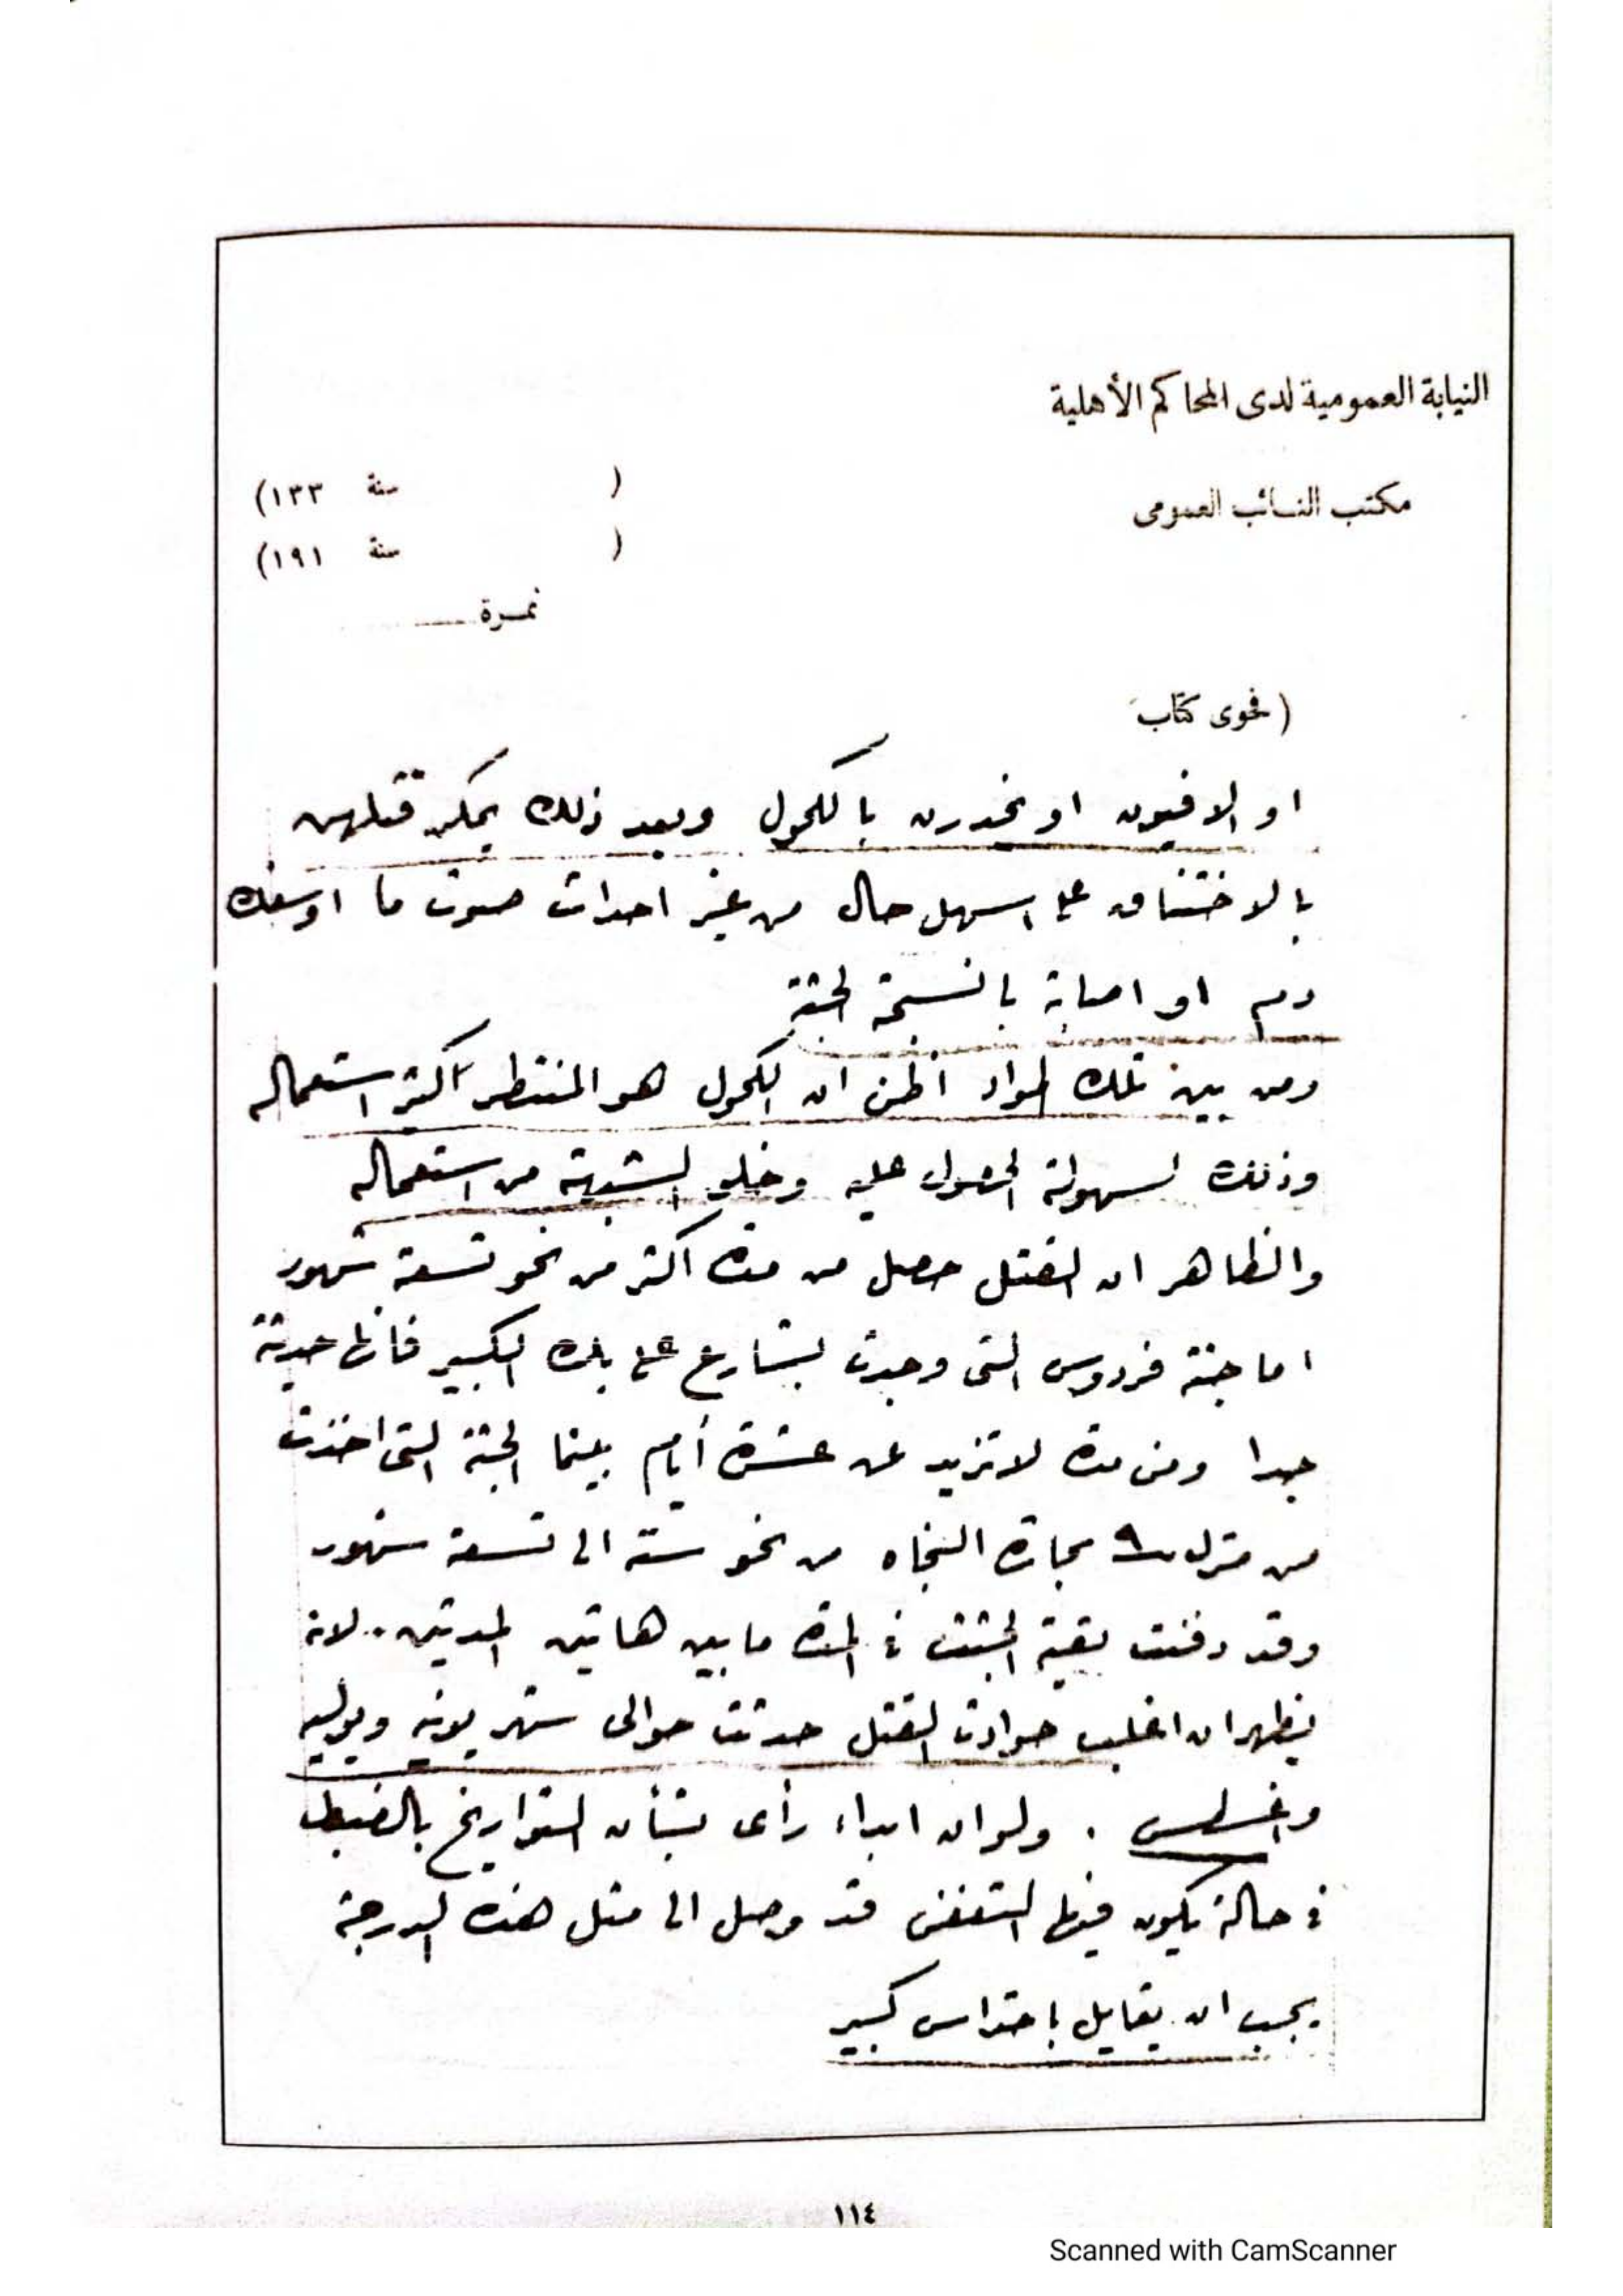 النيابة العمومية لدى المحاكم الأهلية
مكتب النائب العمومى
( سنة ١٣٣)
( سنة ١٩١)
نمرة
( فحوى كتاب
او الافيون او تخديرهن بالكحول وبعد ذلك يمكن قتلهن
بالاختناق على اسهل حال من غير احداث صوت ما او سفك
دم او اصابة بانسجة الجثة
ومن بين تلك المواد أظن ان الكحول هو المنتظر أكثر استعماله
وذلك لسهولة الحصول عليه وخلو الشبهة من استعماله
والظاهر ان القتل حصل من مدة اكثر من نحو تسعة شهور
اما جثة فردوس التى وجدت بشارع على بك الكبير فانها حديثة
جدا ومن مدة لاتزيد عن عشرة أيام بينما الجثة التى اخذت
من منزل ٩ بحارة النجاه من نحو ستة الى تسعة شهور
وقد دفنت بقية الجثث فى المدة مابين هاتين المدتين .. لانه
يظهر ان اغلب حوادث القتل حدثت حوالى شهر يونيه ويوليه
واغسطس . ولو ان ابداء رأى بشأن التواريخ بالضبط
فى حالة يكون فيها التعفن قد وصل الى مثل هذه الدرجة
يجب ان يقابل باحتراس كبير
١١٤
Scanned with CamScanner